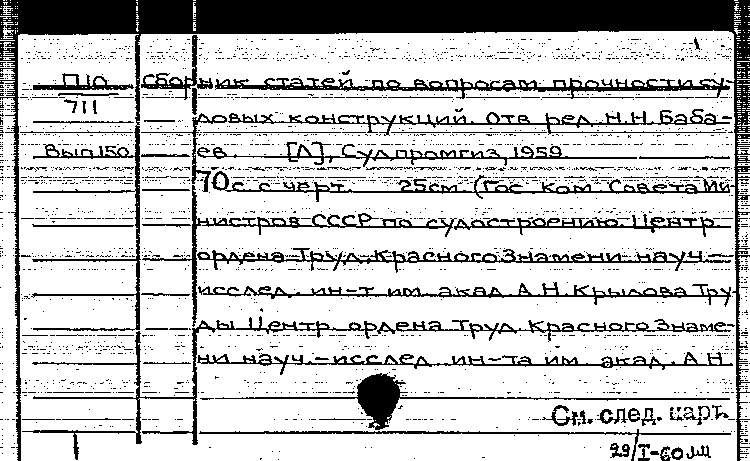 П10 Сборник статей по вопросам прочности су-
711 довых конструкций. Отв ред. Н.Н. Баба-
Вып.150 ев. [Л], Судпромгиз, 1959.
70с с черт. 25см (Гос. ком. Совета Ми-
нистров СССР по судостроению. Центр.
ордена Труд. Красного Знамени науч.-
исслед. ин-т им. акад. А.Н. Крылова Тру-
ды Центр. ордена Труд. Красного Знаме-
ни науч.-исслед. ин-та им. акад. А.Н.
См. след. карт.
29/I-60